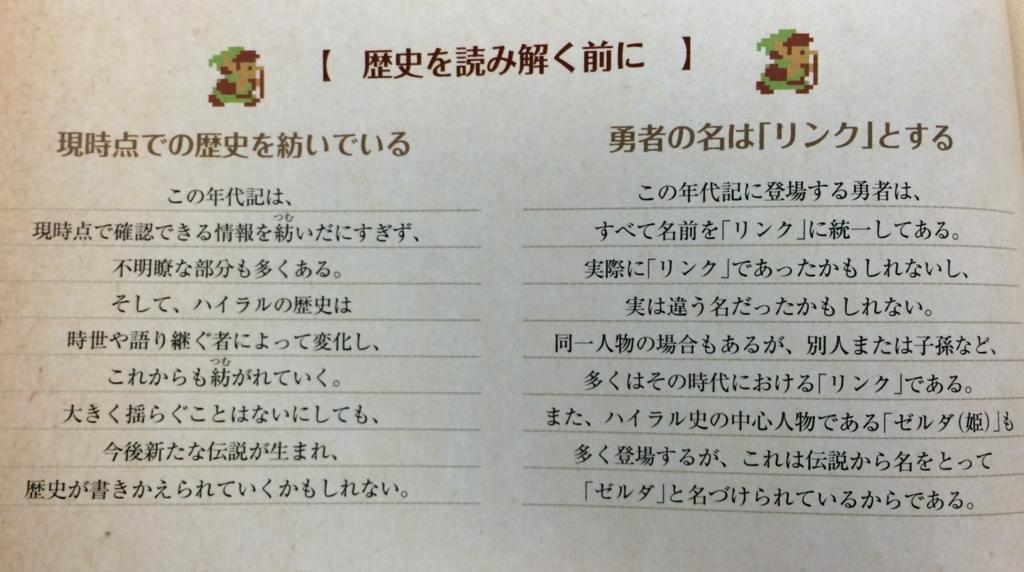 【 歴史を読み解く前に 】
現時点での歴史を紡いでいる
この年代記は、
つむ
現時点で確認できる情報を紡いだにすぎず、
不明瞭な部分も多くある。
そして、ハイラルの歴史は
時世や語り継ぐ者によって変化し、
つむ
これからも紡がれていく。
大きく揺らぐことはないにしても、
今後新たな伝説が生まれ、
歴史が書きかえられていくかもしれない。
勇者の名は「リンク」とする
この年代記に登場する勇者は、
すべて名前を「リンク」に統一してある。
実際に「リンク」であったかもしれないし、
実は違う名だったかもしれない。
同一人物の場合もあるが、別人または子孫など、
多くはその時代における「リンク」である。
また、ハイラル史の中心人物である「ゼルダ(姫)」も
多く登場するが、これは伝説から名をとって
「ゼルダ」と名づけられているからである。